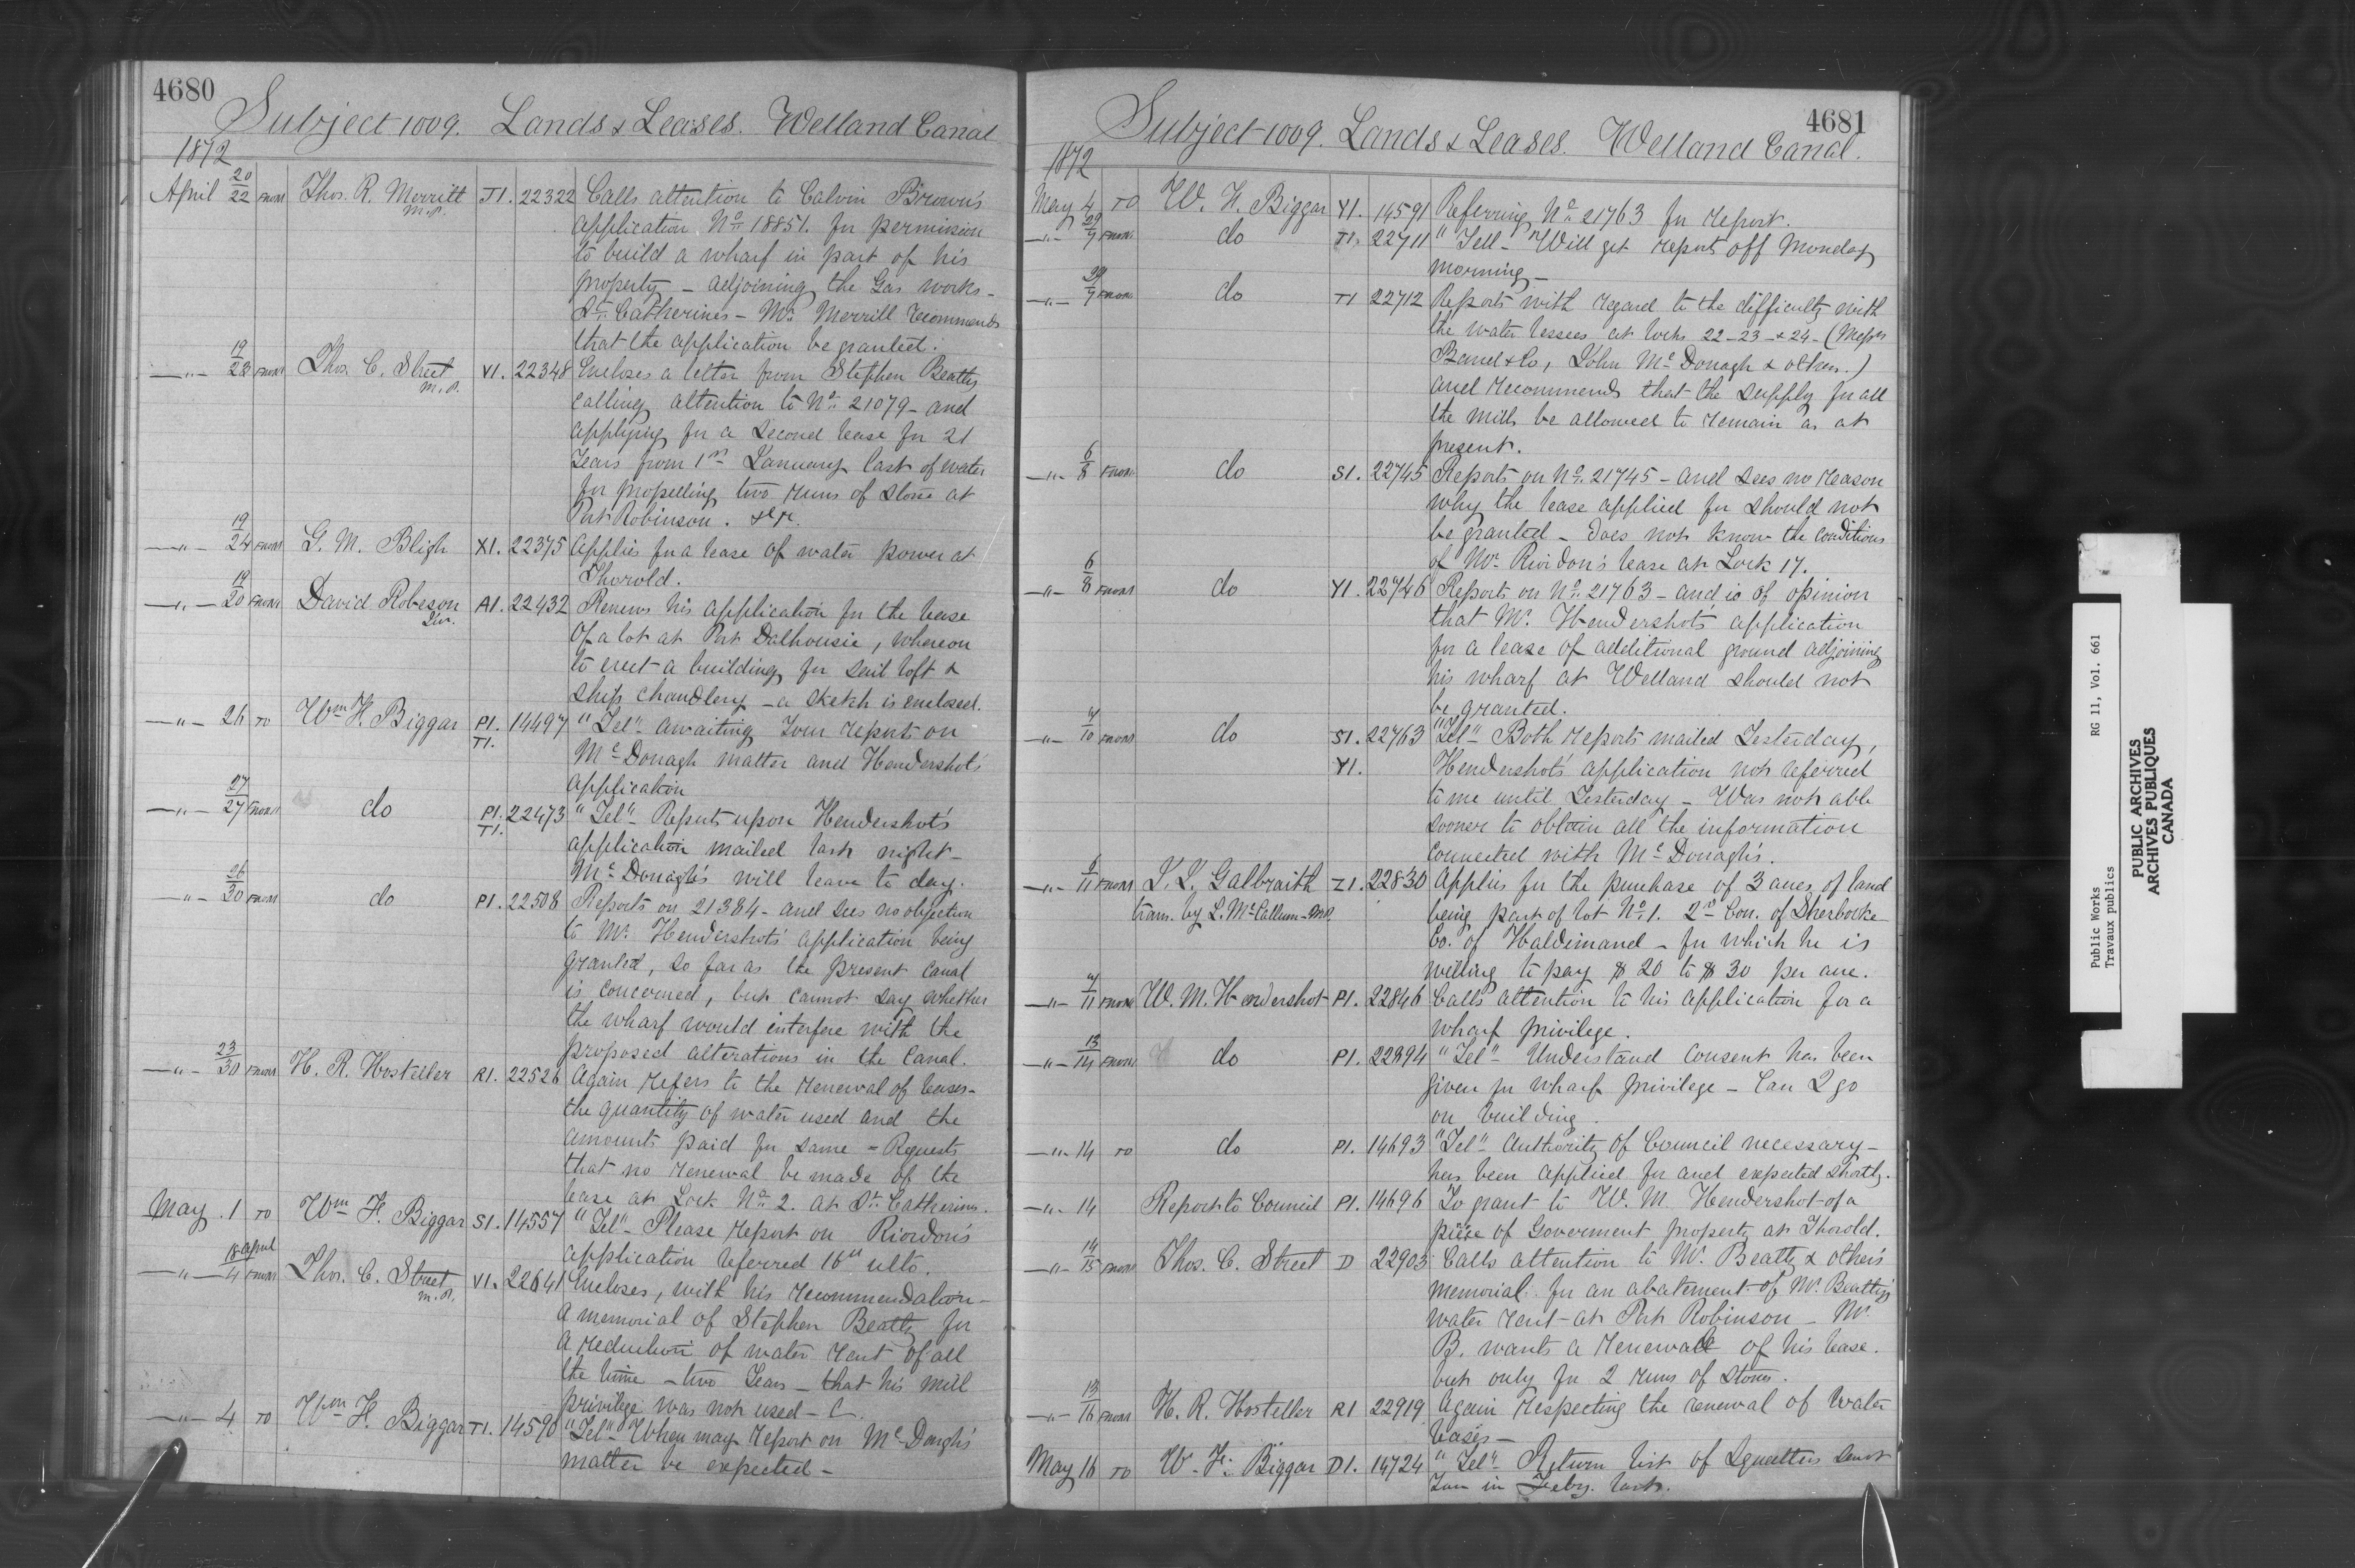 4680
Subject 1009. Lands & Leases. Welland Canal
1872
April 20/22 FROM Thos. R. Merritt M.P. T1. 22322 Calls attention to Calvin Brown's
application No. 18851. for permission
to build a wharf in part of his
property – adjoining the Gas works –
St. Catherines – Mr. Merrill recommends
that the application be granted.
—"— 19/23 FROM Thos. C. Street M.P. V1. 22348 Encloses a letter from Stephen Beatty
calling attention to No. 21079 – and
applying for a second lease for 21
Years from 1st January last of water
for propelling two runs of stone at
Port Robinson. &c.
—"— 19/24 FROM G. M. Bligh X1. 22375 Applies for a lease of water power at
Thorold.
—"— 19/20 FROM David Robeson Jur. A1. 22432 Renews his application for the lease
of a lot at Port Dalhousie, whereon
to erect a building for sail loft &
ship chandlery – a sketch is enclosed.
—"— 26 TO Wm. F. Biggar P1. T1. 14497 "Tel" – Awaiting Your report on
McDonagh matter and Hendershot's
application
—"— 27/27 FROM do P1. T1. 22473 "Tel" – Reports upon Hendershot's
application mailed last night –
McDonagh's will leave to day.
—"— 26/30 FROM do P1. 22508 Reports on 21384 – and sees no objection
to Mr. Hendershot's application being
granted, so far as the present canal
is concerned, but cannot say whether
the wharf would interfere with the
proposed alterations in the Canal.
—"— 23/30 FROM H. R. Hosteller R1. 22526 Again refers to the renewal of leases –
the quantity of water used and the
amounts paid for same – Requests
that no renewal be made of the
lease at Lock No. 2. at St. Catherines.
May 1 TO Wm. F. Biggar S1. 14557 "Tel" – Please report on Riordon's
application referred 16th ulto.
—"— 18 April/4 FROM Thos. C. Street M.P. V1. 22641 Encloses, with his recommendation –
a memorial of Stephen Beatty for
a reduction of water rent of all
the time – two Years – that his mill
privilege was not used –
—"— 4 TO Wm. F. Biggar T1. 14590 "Tel" When may report on McDonagh's
matter be expected –
4681
Subject 1009. Lands & Leases. Welland Canal.
1872
May 4 TO W. F. Biggar Y1. 14591 Referring No. 21763 for report.
—"— 29/9 FROM do T1. 22711 "Tell – Will get reports off Monday
morning –
—"— 29/9 FROM do T1 22712 Reports with regard to the difficulty with
the water lessees at locks 22 – 23 – & 24 – (Messrs
Band & Co, John McDonagh & others.)
and recommends that the supply for all
the mills be allowed to remain as at
present.
—"— 6/8 FROM do S1. 22745 Reports on No. 21745 – and sees no reason
why the lease applied for should not
be granted – does not know the conditions
of Mr. Riordon's lease at Lock 17.
—"— 6/8 FROM do Y1. 22746 Reports on No. 21763 – and is of opinion
that Mr. Hendershot's application
for a lease of additional ground adjoining
his wharf at Welland should not
be granted.
—"— /10 FROM do S1. 22763 "Tel" – Both reports mailed Yesterday,
Y1. Hendershot's application not referred
to me until Yesterday – Was not able
sooner to obtain all the information
connected with McDonagh's.
—"— 6/11 FROM Galbraith Z1. 22830 Applies for the purchase of 3 acres of land
tram. by L. McCallum – M.P. being part of lot No. 1. 2d Con. of Sherbrooke
Co. of Haldimand – for which he is
willing to pay $20 to $30 per acre.
—"— /11 FROM W. M. Hendershot P1. 22846 Calls attention to his application for a
wharf privilege.
—"— 13/14 FROM do P1. 22894 "Tel" – Understand consent has been
given for wharf privilege – Can I go
on building.
—"— 14 TO do P1. 14693 "Tel" – Authority of Council necessary –
has been applied for and expected shortly.
—"— 14 Report to Council P1. 14696 To grant to W. M. Hendershot of a
piece of Goverment property at Thorold.
—"— 14/15 FROM Thos. C. Street D 22903 Calls attention to Mr. Beatty & other's
memorial for an abatement of Mr. Beatty's
water rent – at Port Robinson – Mr.
B. wants a renewal of his lease.
but only for 2 runs of stones.
—"— 13/16 FROM H. R. Hosteller R1 22919 Again respecting the renewal of water
leases –
May 16 TO W. F. Biggar D1. 14724 "Tel" – Return list of Squatters sent
You in Feby. last.
Public Works RG 11, Vol. 661
Travaux publics
PUBLIC ARCHIVES
ARCHIVES PUBLIQUES
CANADA